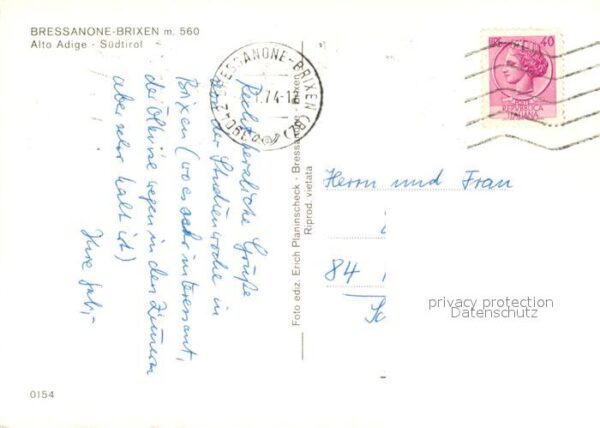 BRESSANONE-BRIXEN m. 560
Alto Adige - Südtirol
BRESSANONE-BRIXEN (BZ)
.1.74-12
39042
40
REPUBBLICA
ITALIANA
Recht herzliche Grüße
von der Studienwoche in
Brixen (wo es sehr interessant,
der Ölkrise wegen in den Zimmern
aber sehr kalt ist)
Ihre
Foto ediz. Erich Planinscheck - Bressanone - Brixen
Riprod. vietata
Herrn und Frau
84
privacy protection
Datenschutz
0154